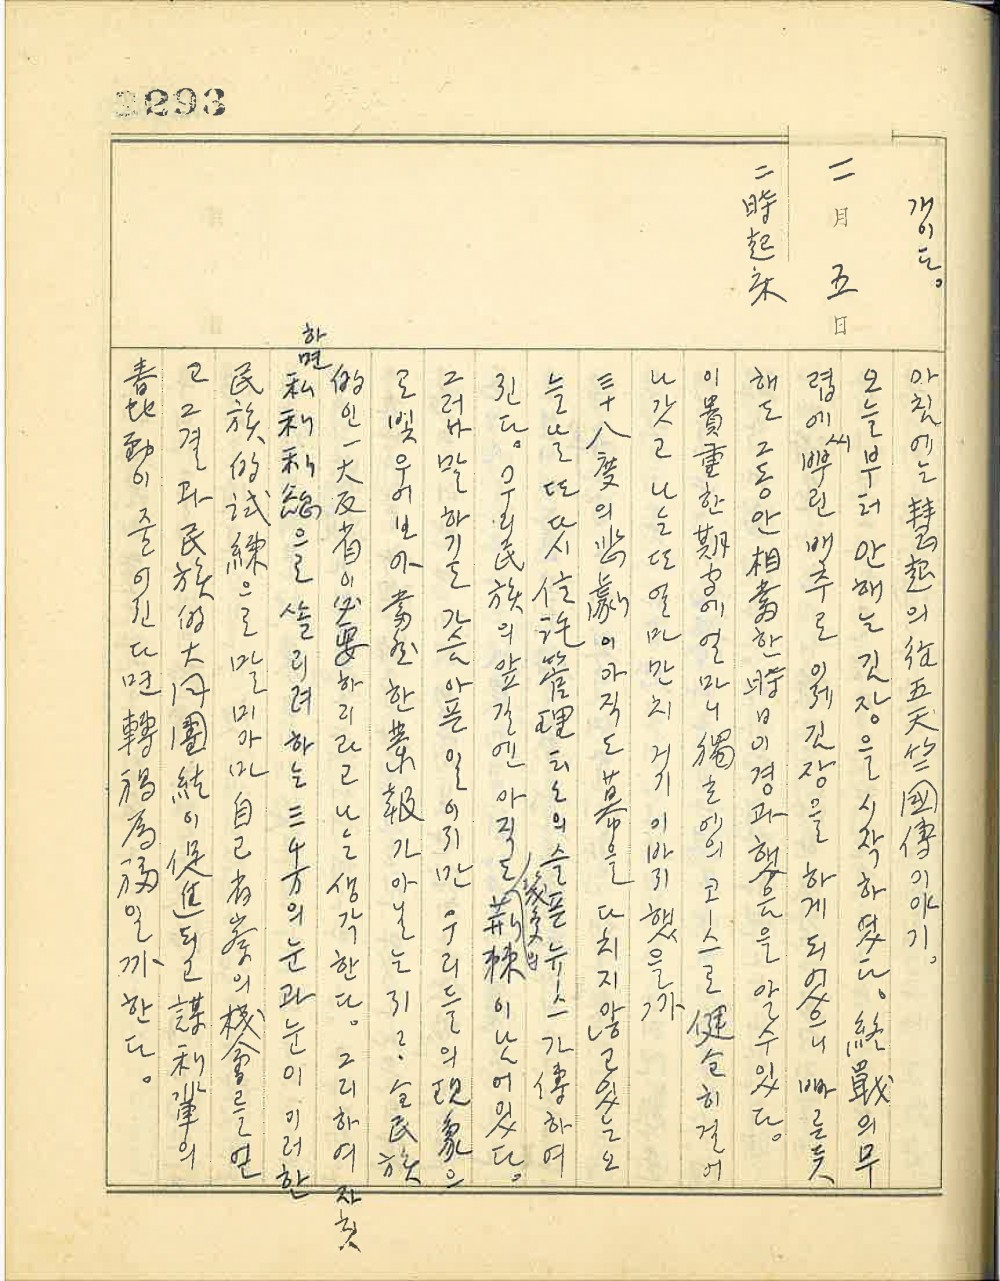 3293
개이도。
二月五日
二時起床
아침에는 彗超의 往五天竺國傳 이야기。
오늘부터 안해는 김장을 시작하였다。終戰의 무
렵에 씨 뿌린 배추로 이제 김장을 하게 되었으니 빠른듯
해도 그동안 相當한 時日이 경과했음을 알수있다。
이 貴重한 期間에 얼마나 獨立에의 코스로 健全히 걸어
나갔고 나는 또 얼마만치 거기 이바지 했을가
三十八度의 悲劇이 아직도 幕을 다치지 않고있는 오
늘날 또다시 信託管理 云云의 슬픈 뉴스가 傳하여
진다。우리 民族의 앞길엔 아직도 많은 荊棘이 남어있다。
그러나 말하기도 가슴아픈 일이지만 우리들의 現象으
로 빛우어 보아 當然한 業報가 아닐는지고. 全民族
的인 一大反省이 必要하리라고 나는 생각한다。그리하여 자칫
하면 私利利慾으로 쏠리려 하는 三千万의 눈과 눈이 이러한
民族的 試練으로 말미아마 自己省察의 機會를 얻
고 그 결과 民族的 大同團結이 促進되고 謀利輩의
蠢動이 줄어진다면 轉禍爲福일까 한다。